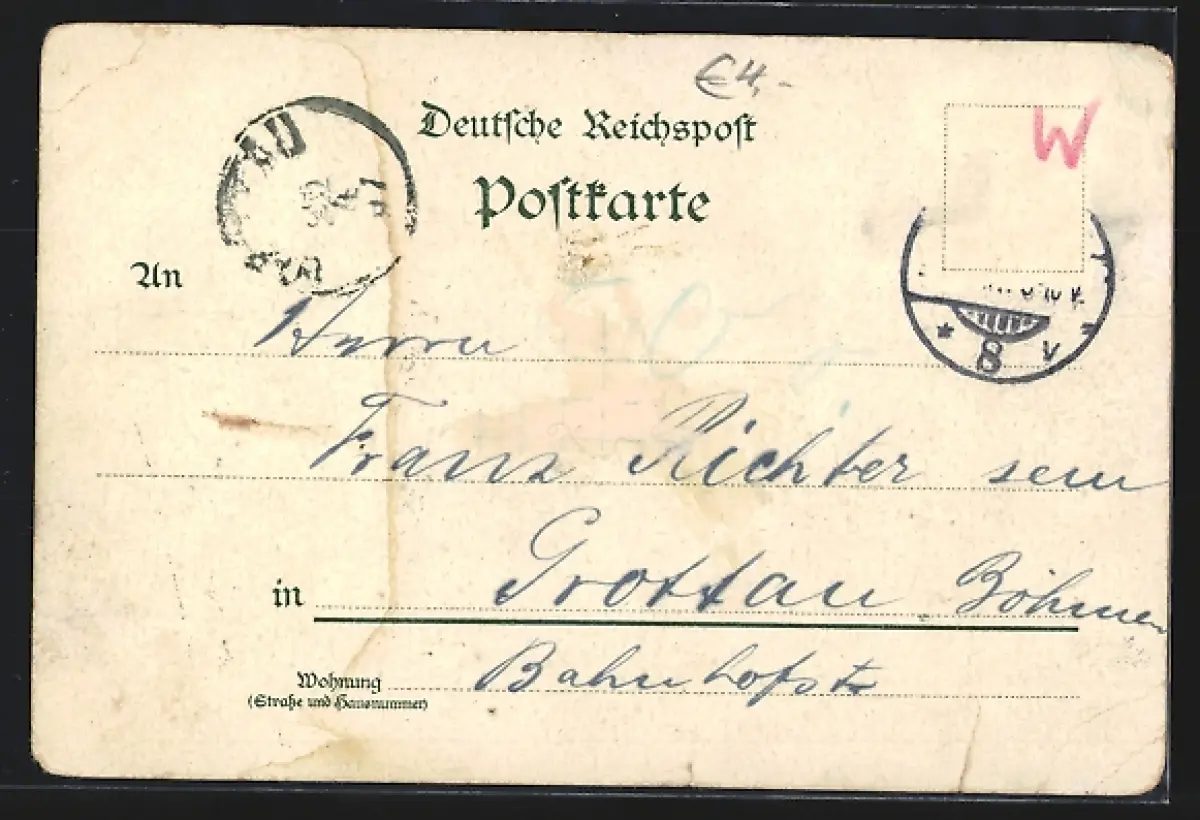 € 4,-
Deutsche Reichspost
Postkarte
W
An
Herrn
Franz Richter sen
in Grottau Böhmen
Wohnung Bahnhofstr
(Straße und Hausnummer)
TAU
* 8 V